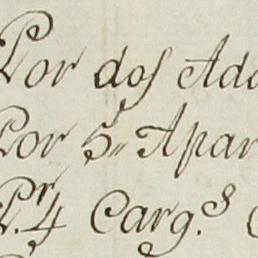 Por dos Ada
Por 5,, Apar
Pr. 4 Carg.s